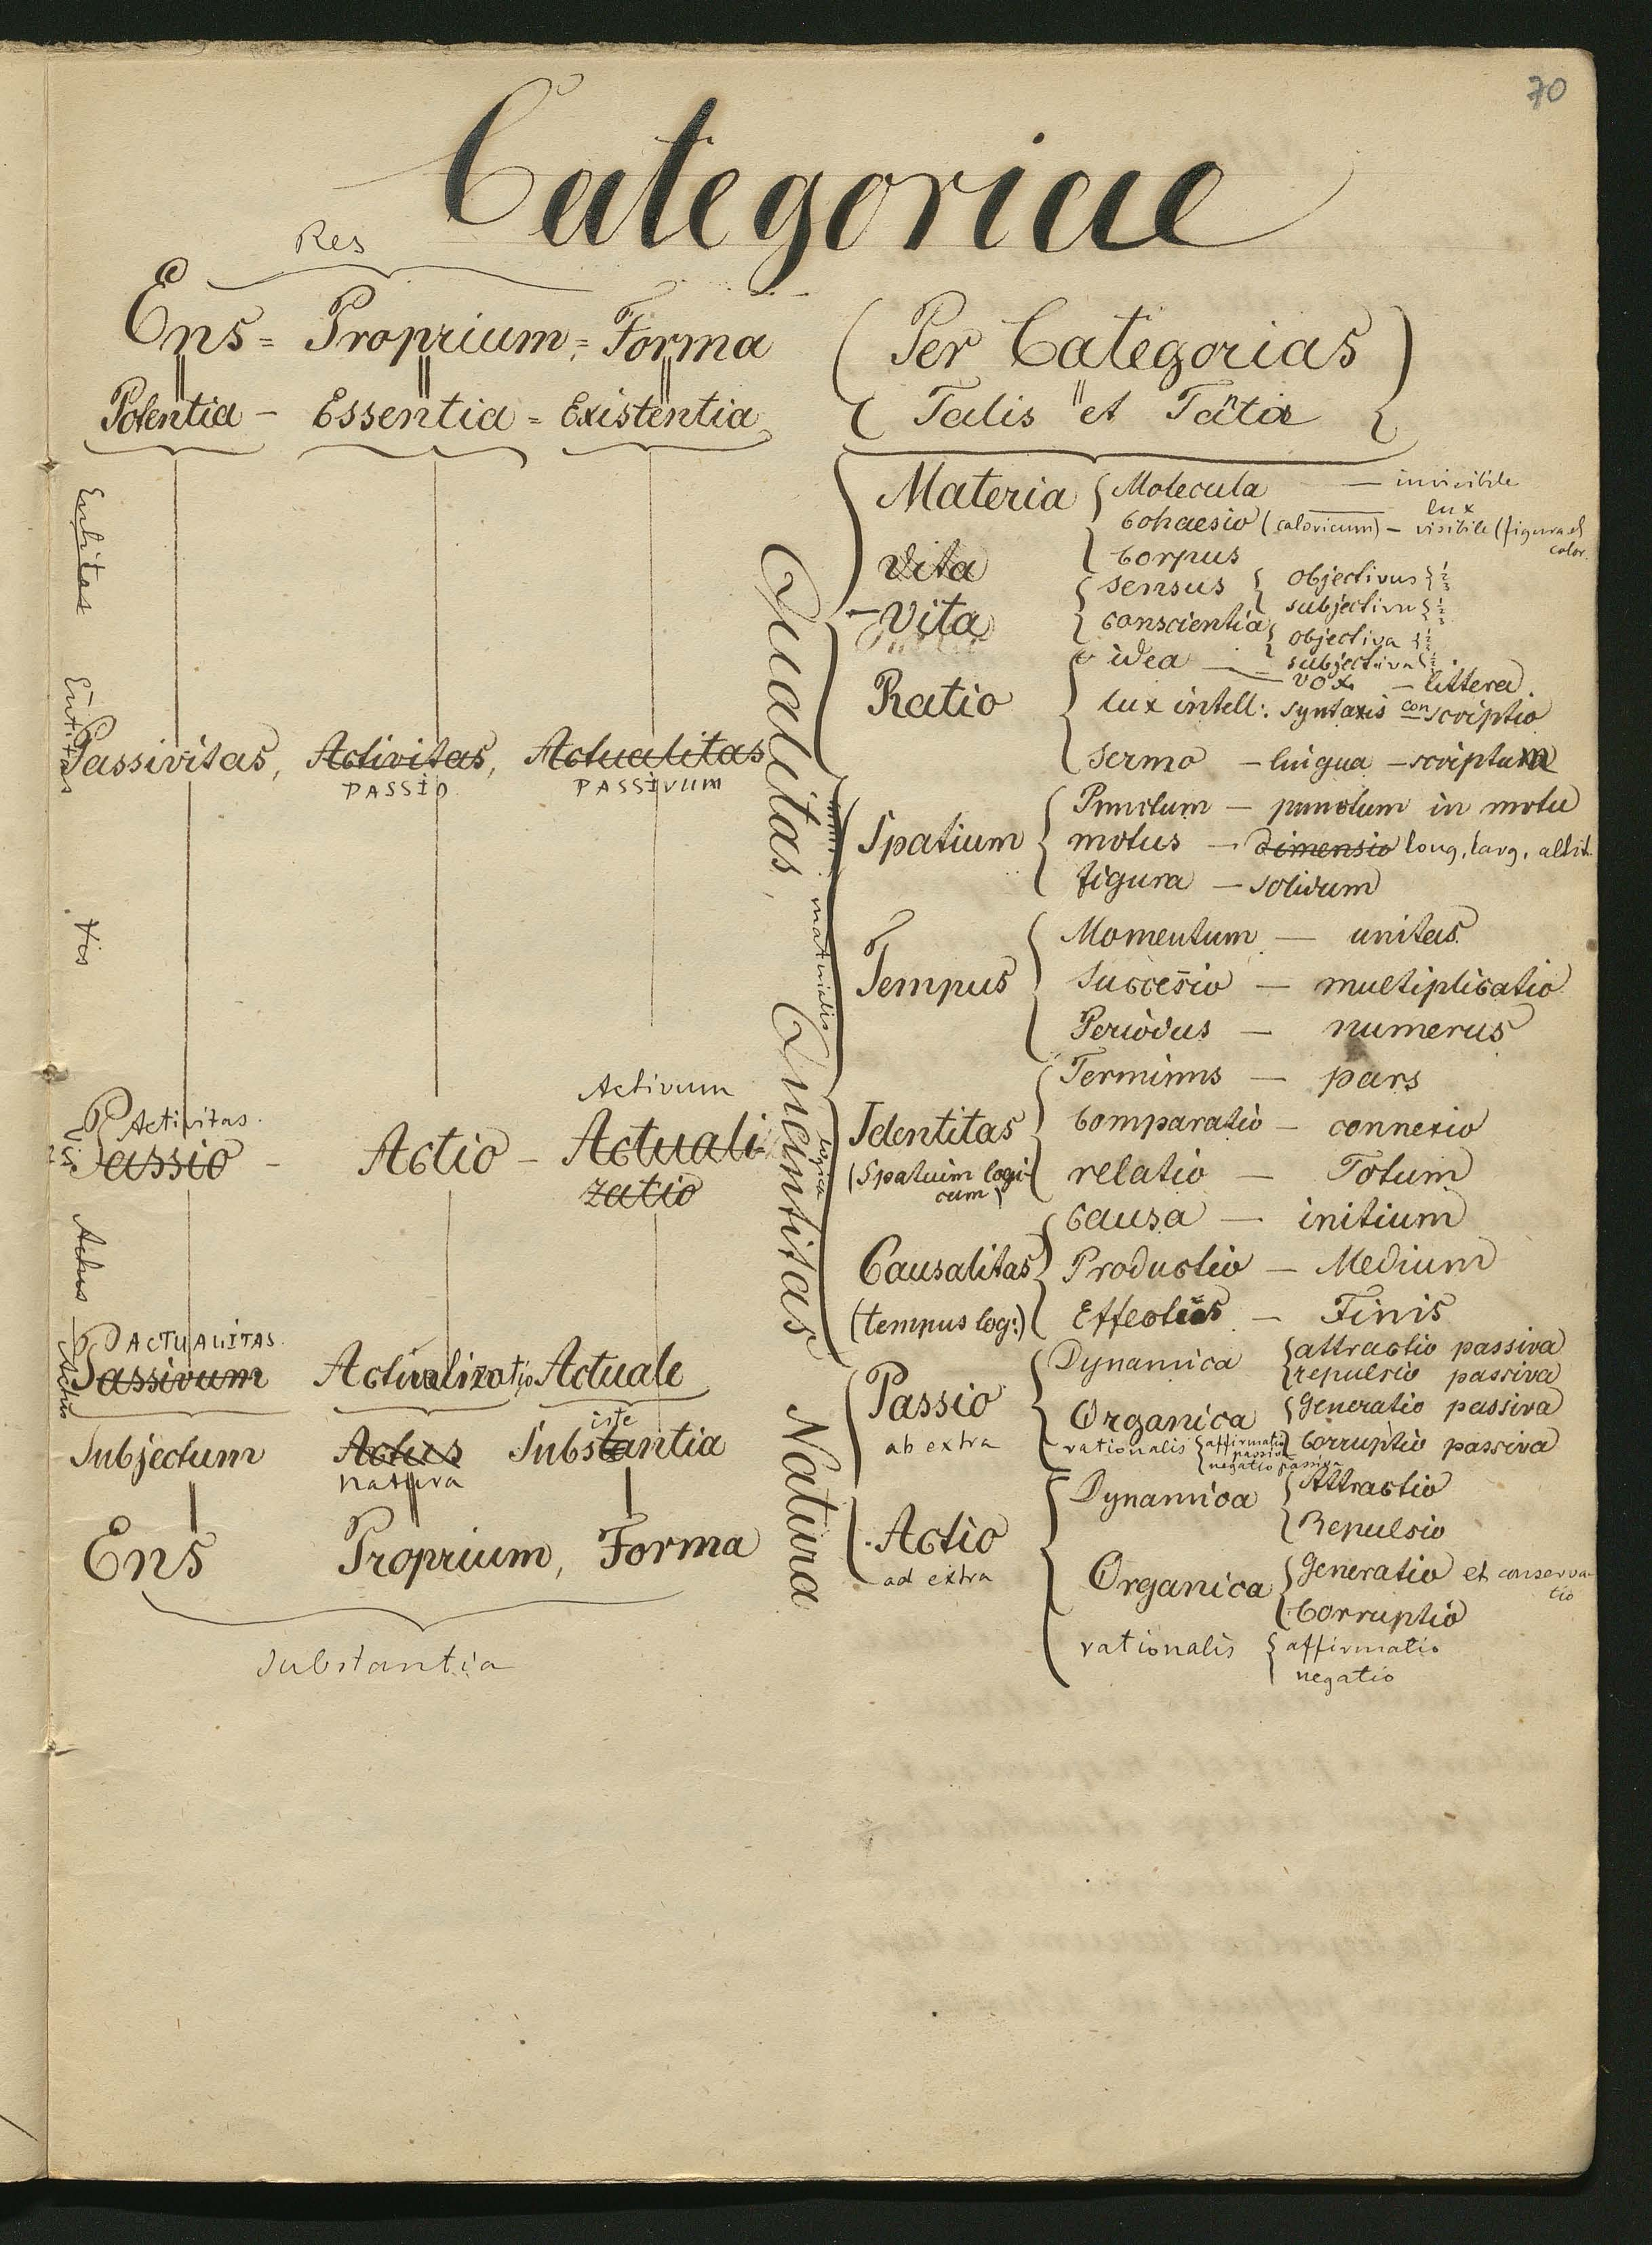 70
Categoriae
Res
Ens = Proprium = Forma
Potentia - Essentia = Existentia
(Per Categorias)
Talis et Tanta
Entitas
Entitas
Passivitas, Activitas, Actualitas
PASSIO PASSIVUM
Vis
Activum
Activitas.
Vis
Passio - Actio - Actuali
zatio
Actus
ACTUALITAS.
Actus
Passivum Actualizatio Actuale
Subjectum Actus Substantia
iste
natura
Ens Proprium, Forma
Substantia
Qualitas, Quantitas Natura
materialis
logica
Materia { Molecula — invisibile
lux
Cohaesio (caloricum) — visibile (figura et
color.
Corpus
Vita
- Vita
sensus { objectivus {
subjectivu {
conscientia { objectiva {
subjectiva {
Ratio
idea — vox — littera
lux intell: syntaxis conscriptio
sermo — lingua — scriptum
Spatium { Punctum — punctum in motu
motus — dimensio long, larg, altit.
figura — solidum
Tempus { Momentum — unitas
Succesio — multiplicatio
Periodus — numerus
Identitas
(Spatium logi-
cum)
Terminus — pars
Comparatio — connexio
relatio — Totum
Causalitas
(tempus log:)
Causa — initium
Productio — Medium
Effectus — Finis
Passio
ab extra
Dynamica { attractio passiva
repulsio passiva
Organica { Generatio passiva
Corruptio passiva
rationalis { affirmatio
passiva
negatio passiva
Actio
ad extra
Dynamica { Attractio
Repulsio
Organica { Generatio et conserva-
tio
Corruptio
rationalis { affirmatio
negatio